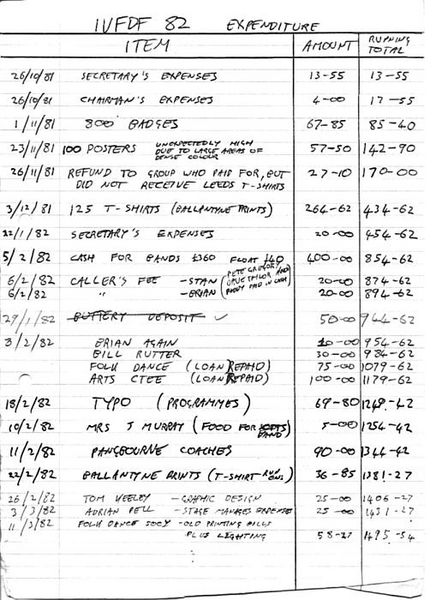 IVFDF 82 EXPENDITURE
ITEM AMOUNT RUNNING TOTAL
26/10/81 SECRETARY'S EXPENSES 13-55 13-55
26/10/81 CHAIRMAN'S EXPENSES 4-00 17-55
1/11/81 300 BADGES 67-85 85-40
23/11/81 100 POSTERS UNEXPECTEDLY HIGH DUE TO LARGE AREAS OF DENSE COLOUR 57-50 142-90
26/11/81 REFUND TO GROUP WHO PAID FOR, BUT 27-10 170-00
DID NOT RECEIVE LEEDS T-SHIRTS
3/12/81 125 T-SHIRTS (BALLANTYNE PRINTS) 264-62 434-62
22/1/82 SECRETARY'S EXPENSES 20-00 454-62
5/2/82 CASH FOR BANDS £360 FLOAT £40 400-00 854-62
6/2/82 CALLER'S FEE -STAN (PETE GREGORY TAYLOR AND PAID IN CASH 20-00 874-62
6/2/82 " -BRIAN 20-00 894-62
29/1/82 BUTTERY DEPOSIT 50-00 944-62
3/2/82 BRIAN AGAIN 10-00 954-62
BILL RUTTER 30-00 984-62
FOLK DANCE (LOAN REPAID) 75-00 1079-62
ARTS CTEE (LOAN REPAID) 100-00 1179-62
18/2/82 TYPO (PROGRAMMES) 69-80 1249-42
10/2/82 MRS J MURRAY (FOOD FOR BAND) 5-00 1254-42
11/2/82 PANGBOURNE COACHES 90-00 1344-42
22/2/82 BALLANTYNE PRINTS (T-SHIRT RUN ONS) 36-85 1381-27
26/2/82 TOM -GRAPHIC DESIGN 25-00 1406-27
3/3/82 ADRIAN PELL -STAGE MANAGERS EXPENSES 25-00 1431-27
11/3/82 FOLK DANCE SOCY -OLD PRINTING BILLS
PLUS LIGHTING 58-27 1495-54